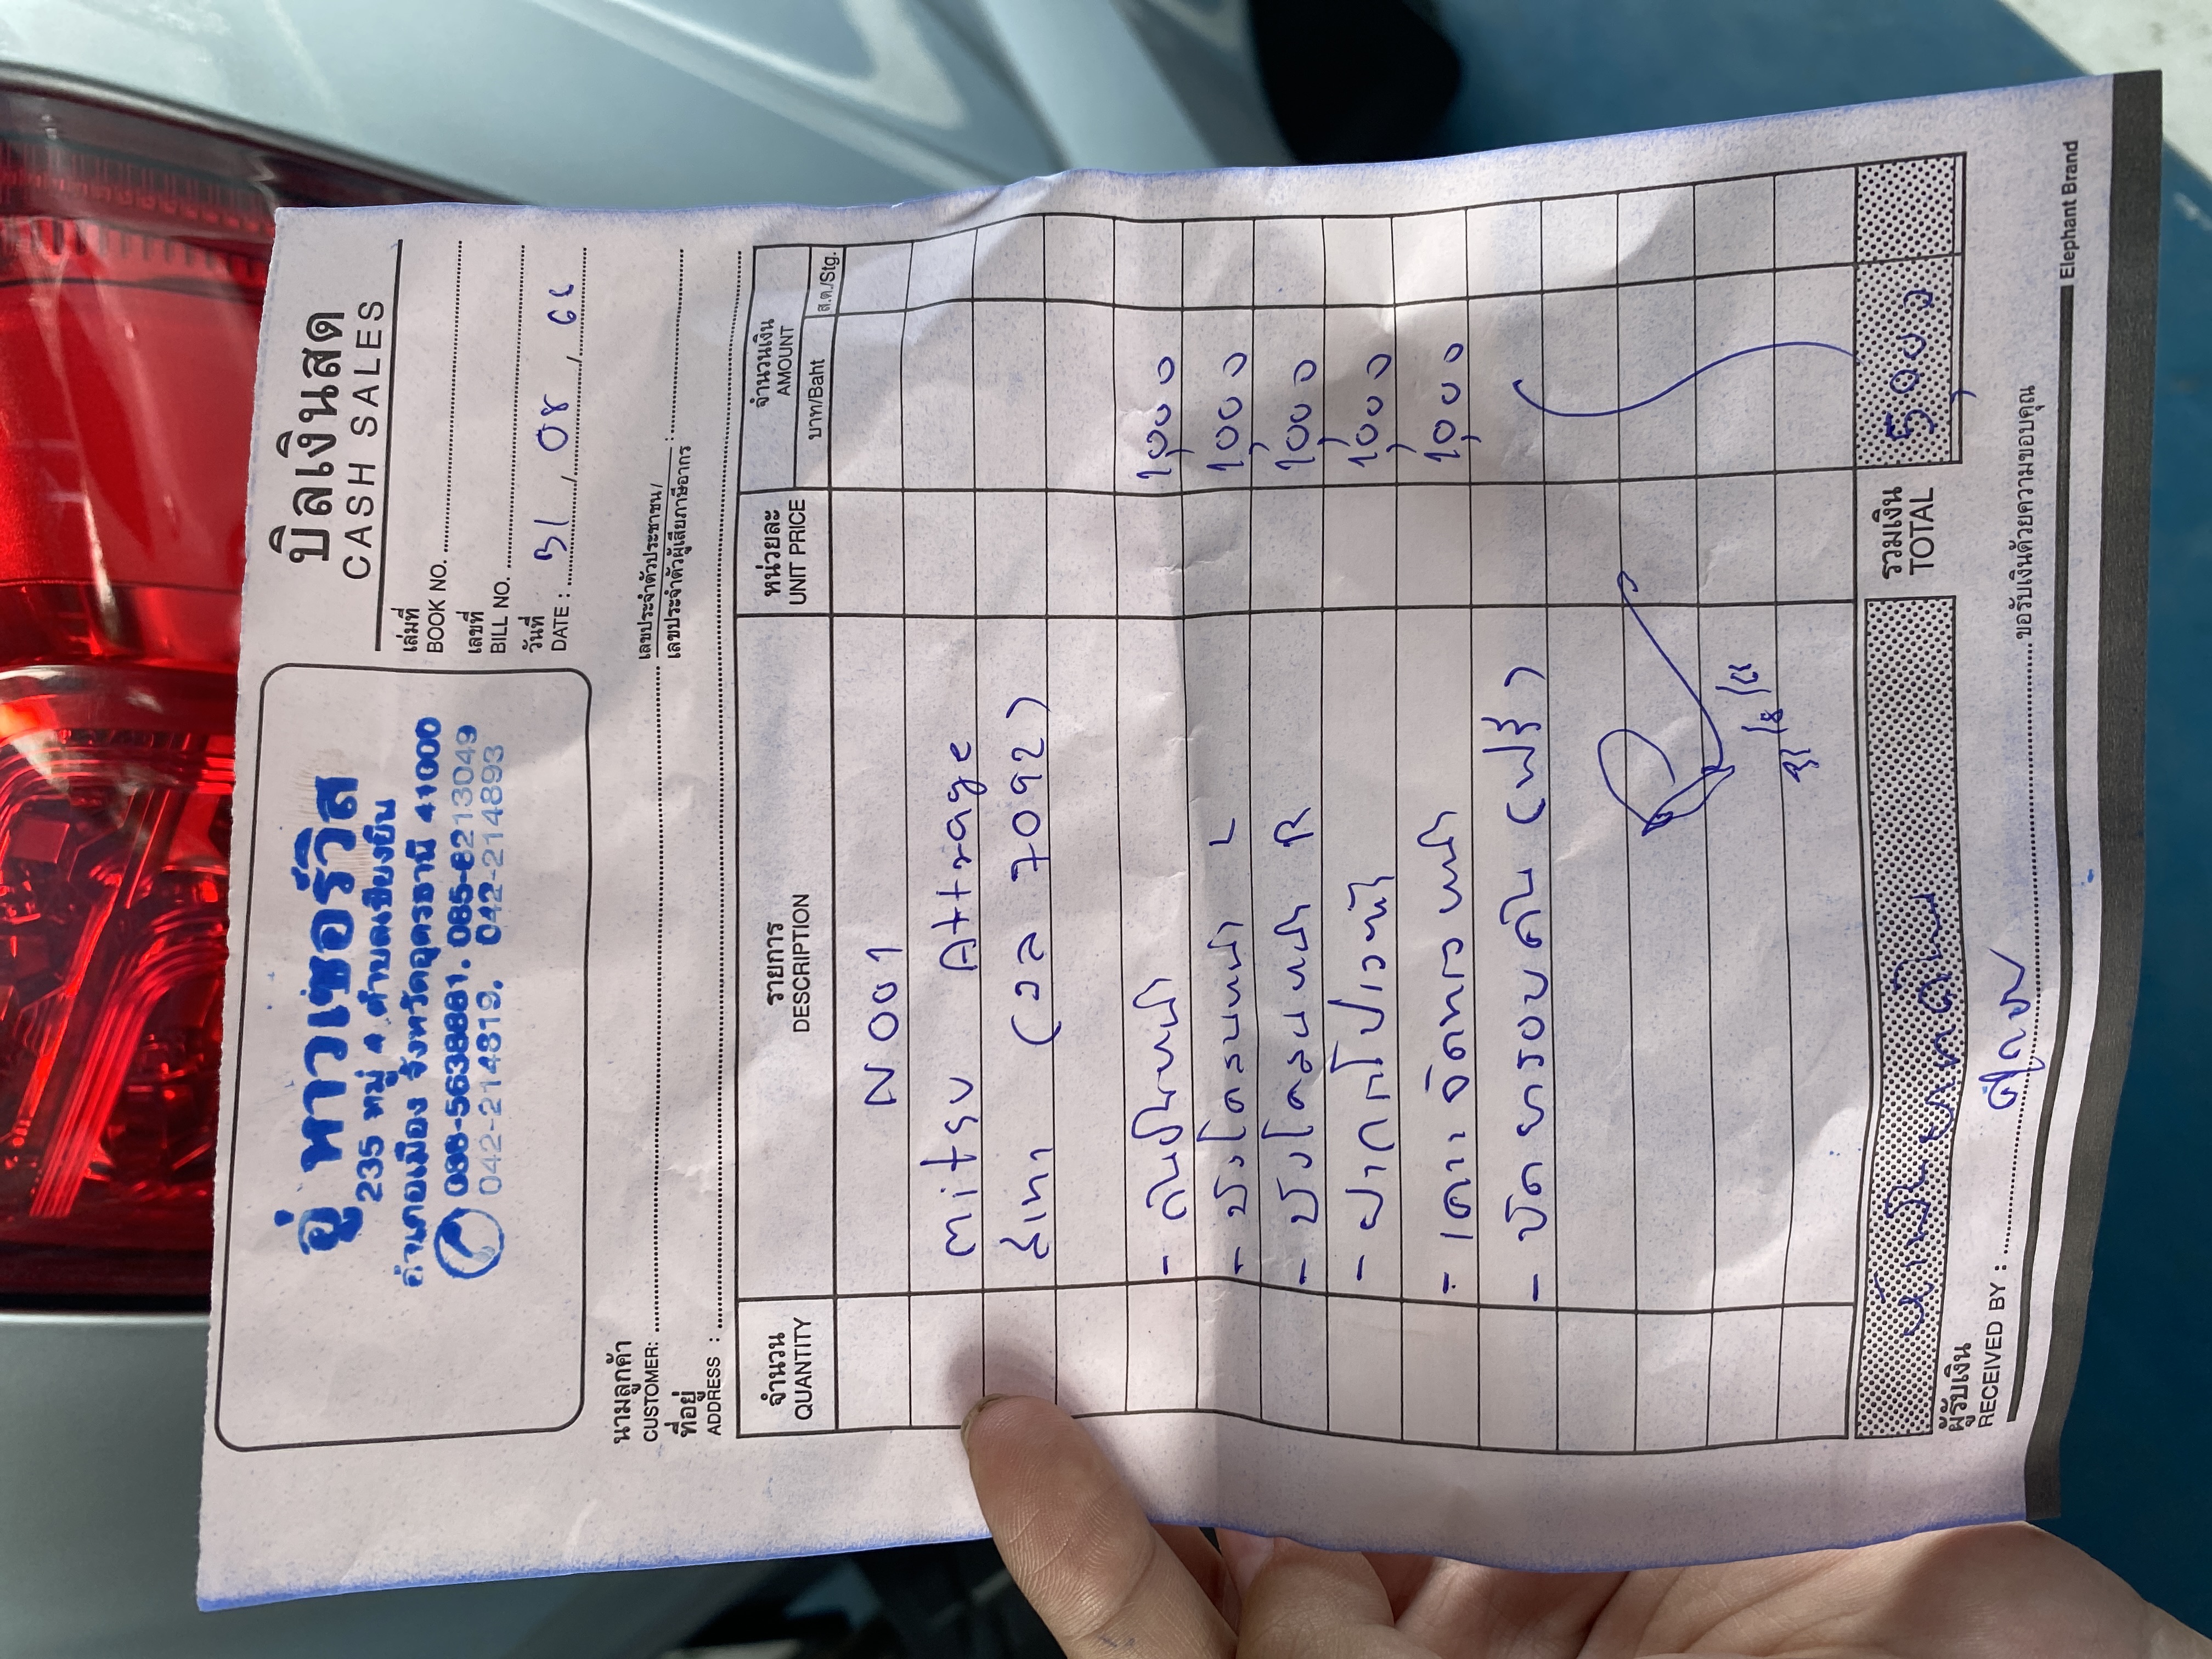 บิลเงินสด
CASH SALES
อู่ หาวเซอร์วิส
235 หมู่ 4 ตำบลเชียงยืน
อำเภอเมือง จังหวัดอุดรธานี 41000
085-8213049
042-214819, 042-214893
เล่มที่
BOOK NO.
เลขที่
BILL NO.
วันที่
DATE : 31 / 08 / 66
นามลูกค้า
CUSTOMER:
เลขประจำตัวประชาชน/
เลขประจำตัวผู้เสียภาษีอากร :
ที่อยู่
ADDRESS :
จำนวน รายการ หน่วยละ จำนวนเงิน
QUANTITY DESCRIPTION UNIT PRICE AMOUNT
บาท/Baht ส.ต./Stg.
N001
mitsu Attrage
สีเทา 7092)
- กันชนหน้า 1,000
- บังโคลนหน้า L 1,000
- บังโคลนหน้า R 1,000
- ฝากระโปรงหน้า 1,000
- เคาะ หน้า 1,000
- ขัด ยา รอบคัน (ฟรี)
31/8/66
รวมเงิน
TOTAL 5,000
ผู้รับเงิน
RECEIVED BY :
ขอรับเงินด้วยความขอบคุณ
Elephant Brand